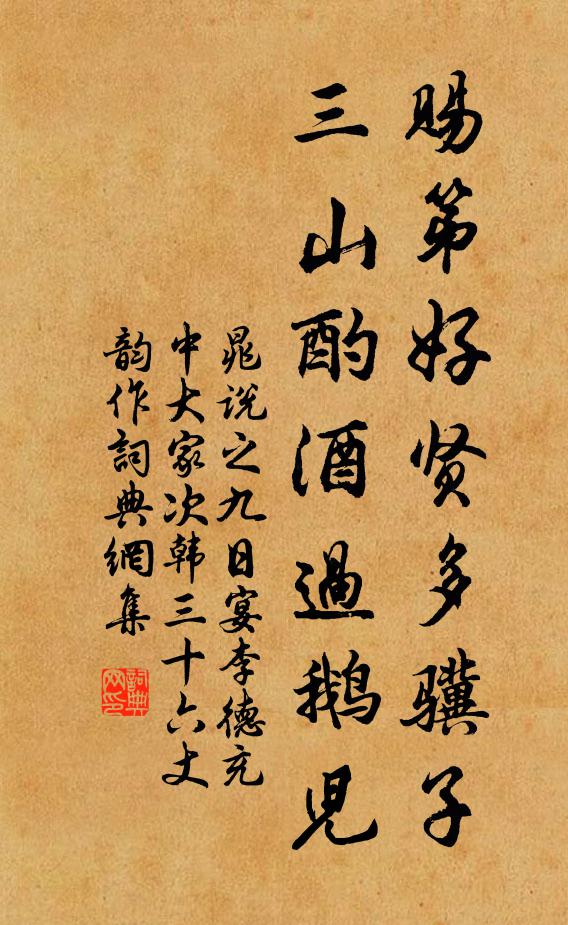 赐第好贤多骥子
三山酌酒過鹅児
晁说之九日宴李德充
中大家次韩三十六丈
韵作詞典網集
詞典
网印